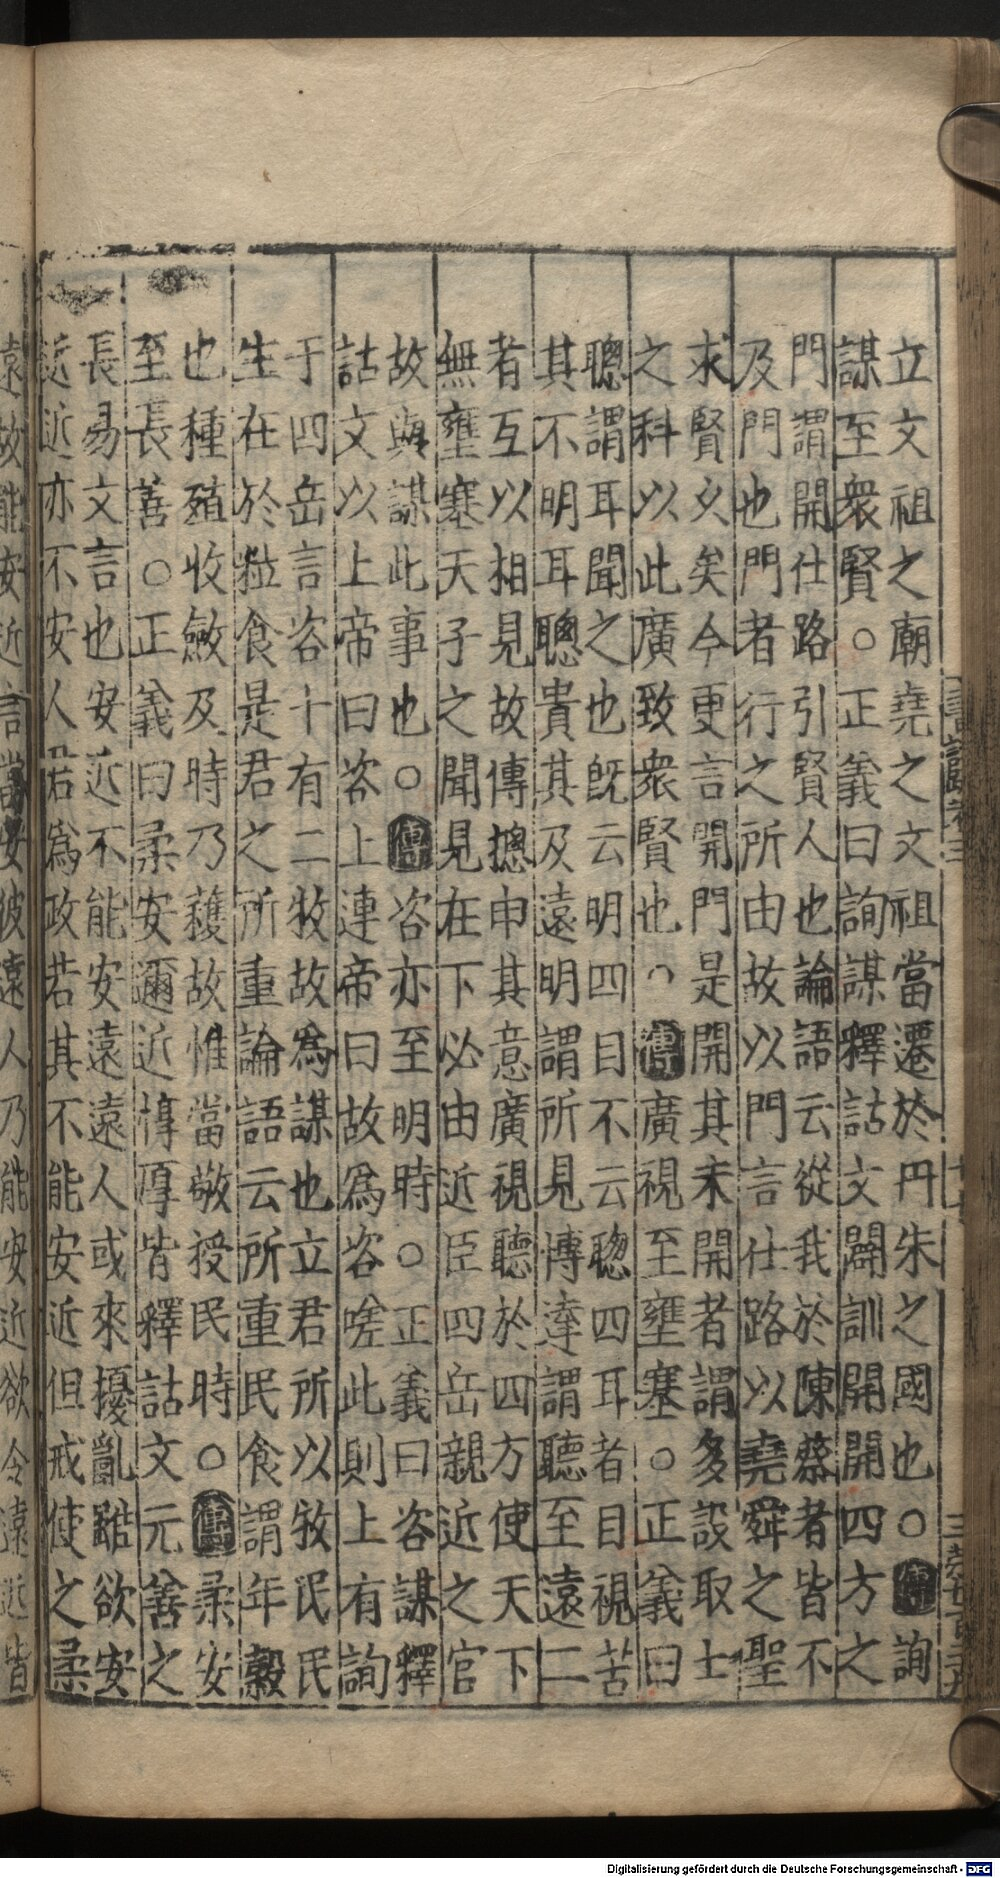 立文祖之廟堯之文祖當遷於丹朱之國也○傳詢
謀至衆賢○正義曰詢謀釋詁文闢訓開開四方之
門謂開仕路引賢人也論語云從我於陳蔡者皆不
及門也門者行之所由故以門言仕路以堯舜之聖
求賢久矣今更言開門是開其未開者謂多設取士
之科以此廣致衆賢也○傳廣視至壅塞○正義曰
聰謂耳聞之也旣云明四目不云聦四耳者目視苦
其不明耳聰貴其及遠明謂所見博達謂聽至遠二
者互以相見故傳摠申其意廣視聽於四方使天下
無壅塞天子之聞見在下必由近臣四岳親近之官
故與謀此事也○傳咨亦至明時○正義曰咨謀釋
詁文以上帝曰咨上連帝曰故爲咨嗟此則上有詢
于四岳言咨十有二牧故爲謀也立君所以牧民民
生在於粒食是君之所重論語云所重民食謂年穀
也種殖收斂及時乃穫故惟當敬授民時○傳柔安
至長善○正義曰柔安邇近惇厚皆釋詁文元善之
長易文言也安近不能安遠遠人或來擾亂雖欲安
近近亦不安人君爲政若其不能安近但戒使之柔
遠故能安近言當安彼遠人乃能安近欲令遠近皆
Digitalisierung gefördert durch die Deutsche Forschungsgemeinschaft - DFG